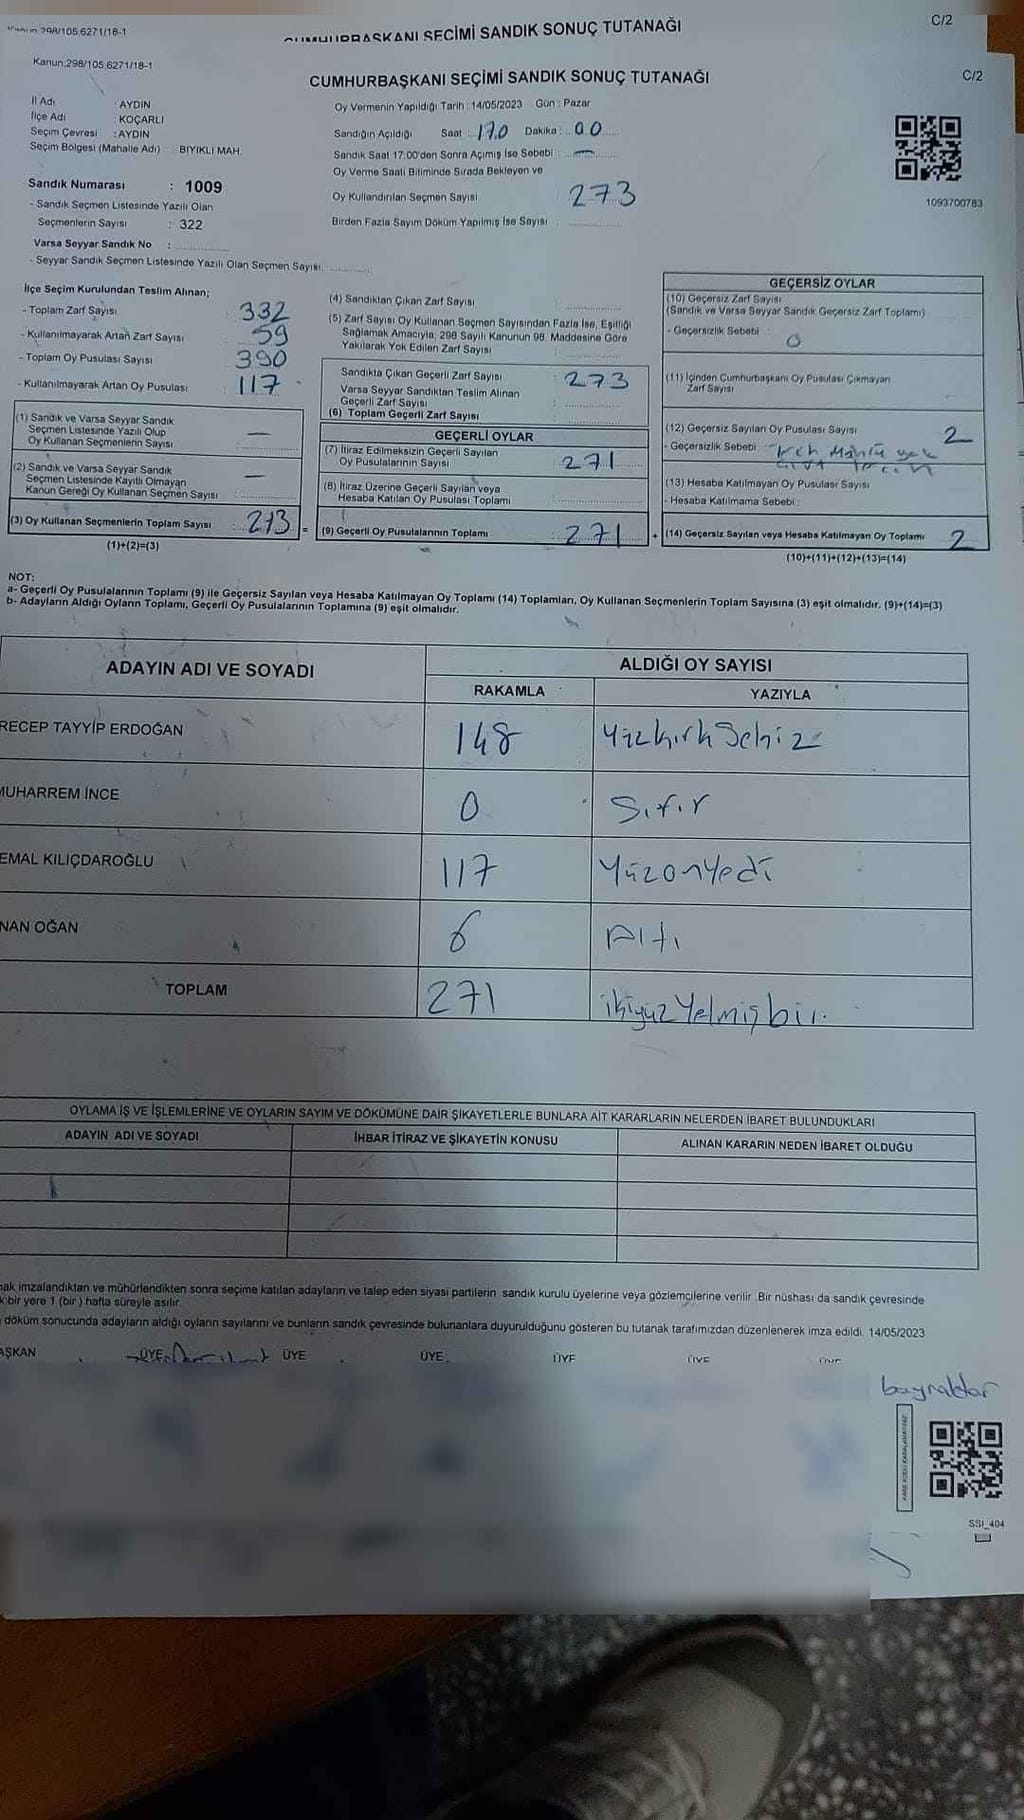 Kanun 298/105,6271/18-1
CUMHURBAŞKANI SEÇİMİ SANDIK SONUÇ TUTANAĞI
C/2
Kanun,298/105,6271/18-1
CUMHURBAŞKANI SEÇİMİ SANDIK SONUÇ TUTANAĞI
C/2
İl Adı : AYDIN
İlçe Adı : KOÇARLI
Seçim Çevresi : AYDIN
Seçim Bölgesi (Mahalle Adı) BIYIKLI MAH.
Oy Vermenin Yapıldığı Tarih : 14/05/2023 Gün : Pazar
Sandığın Açıldığı Saat : 17.0 Dakika : 00
Sandık Saat 17:00'den Sonra Açımış İse Sebebi : —
Oy Verme Saati Bitiminde Sırada Bekleyen ve
Oy Kullandırılan Seçmen Sayısı 273
Birden Fazla Sayım Döküm Yapılmış İse Sayısı :
1093700783
Sandık Numarası : 1009
- Sandık Seçmen Listesinde Yazılı Olan
Seçmenlerin Sayısı : 322
Varsa Seyyar Sandık No :
- Seyyar Sandık Seçmen Listesinde Yazılı Olan Seçmen Sayısı:
İlçe Seçim Kurulundan Teslim Alınan;
- Toplam Zarf Sayısı : 332
- Kullanılmayarak Artan Zarf Sayısı : 59
- Toplam Oy Pusulası Sayısı : 390
- Kullanılmayarak Artan Oy Pusulası : 117
(1) Sandık ve Varsa Seyyar Sandık
Seçmen Listesinde Yazılı Olup
Oy Kullanan Seçmenlerin Sayısı —
(2) Sandık ve Varsa Seyyar Sandık
Seçmen Listesinde Kayıtlı Olmayan
Kanun Gereği Oy Kullanan Seçmen Sayısı : —
(3) Oy Kullanan Seçmenlerin Toplam Sayısı : 273 =
(1)+(2)=(3)
(4) Sandıktan Çıkan Zarf Sayısı
(5) Zarf Sayısı Oy Kullanan Seçmen Sayısından Fazla İse, Eşitliği
Sağlamak Amacıyla, 298 Sayılı Kanunun 98. Maddesine Göre
Yakılarak Yok Edilen Zarf Sayısı :
Sandıkta Çıkan Geçerli Zarf Sayısı : 273
Varsa Seyyar Sandıktan Teslim Alınan
Geçerli Zarf Sayısı :
(6) Toplam Geçerli Zarf Sayısı
GEÇERLİ OYLAR
(7) İtiraz Edilmeksizin Geçerli Sayılan
Oy Pusulalarının Sayısı : 271
(8) İtiraz Üzerine Geçerli Sayılan veya
Hesaba Katılan Oy Pusulası Toplamı :
(9) Geçerli Oy Pusulalarının Toplamı : 271 +
GEÇERSİZ OYLAR
(10) Geçersiz Zarf Sayısı
(Sandık ve Varsa Seyyar Sandık Geçersiz Zarf Toplamı)
- Geçersizlik Sebebi :
0
(11) İçinden Cumhurbaşkanı Oy Pusulası Çıkmayan
Zarf Sayısı
(12) Geçersiz Sayılan Oy Pusulası Sayısı 2
- Geçersizlik Sebebi
(13) Hesaba Katılmayan Oy Pusulası Sayısı
- Hesaba Katılmama Sebebi :
(14) Geçersiz Sayılan veya Hesaba Katılmayan Oy Toplamı 2
(10)+(11)+(12)+(13)=(14)
NOT:
a- Geçerli Oy Pusulalarının Toplamı (9) ile Geçersiz Sayılan veya Hesaba Katılmayan Oy Toplamı (14) Toplamları, Oy Kullanan Seçmenlerin Toplam Sayısına (3) eşit olmalıdır. (9)+(14)=(3)
b- Adayların Aldığı Oyların Toplamı, Geçerli Oy Pusulalarının Toplamına (9) eşit olmalıdır.
ADAYIN ADI VE SOYADI ALDIĞI OY SAYISI
RAKAMLA YAZIYLA
RECEP TAYYİP ERDOĞAN 148 YüzkırkSekiz
MUHARREM İNCE 0 Sıfır
EMAL KILIÇDAROĞLU 117 YüzonYedi
NAN OĞAN 6 Altı
TOPLAM 271 ikiyüzYetmişbir.
OYLAMA İŞ VE İŞLEMLERİNE VE OYLARIN SAYIM VE DÖKÜMÜNE DAİR ŞİKAYETLERLE BUNLARA AİT KARARLARIN NELERDEN İBARET BULUNDUKLARI
ADAYIN ADI VE SOYADI İHBAR İTİRAZ VE ŞİKAYETİN KONUSU ALINAN KARARIN NEDEN İBARET OLDUĞU
nak imzalandıktan ve mühürlendikten sonra seçime katılan adayların ve talep eden siyasi partilerin sandık kurulu üyelerine veya gözlemcilerine verilir. Bir nüshası da sandık çevresinde
k bir yere 1 (bir ) hafta süreyle asılır.
döküm sonucunda adayların aldığı oyların sayılarını ve bunların sandık çevresinde bulunanlara duyurulduğunu gösteren bu tutanak tarafımızdan düzenlenerek imza edildi. 14/05/2023
AŞKAN ÜYE ÜYE ÜYE ÜYE ÜYE ÜYE
bayraktar
SSI_404